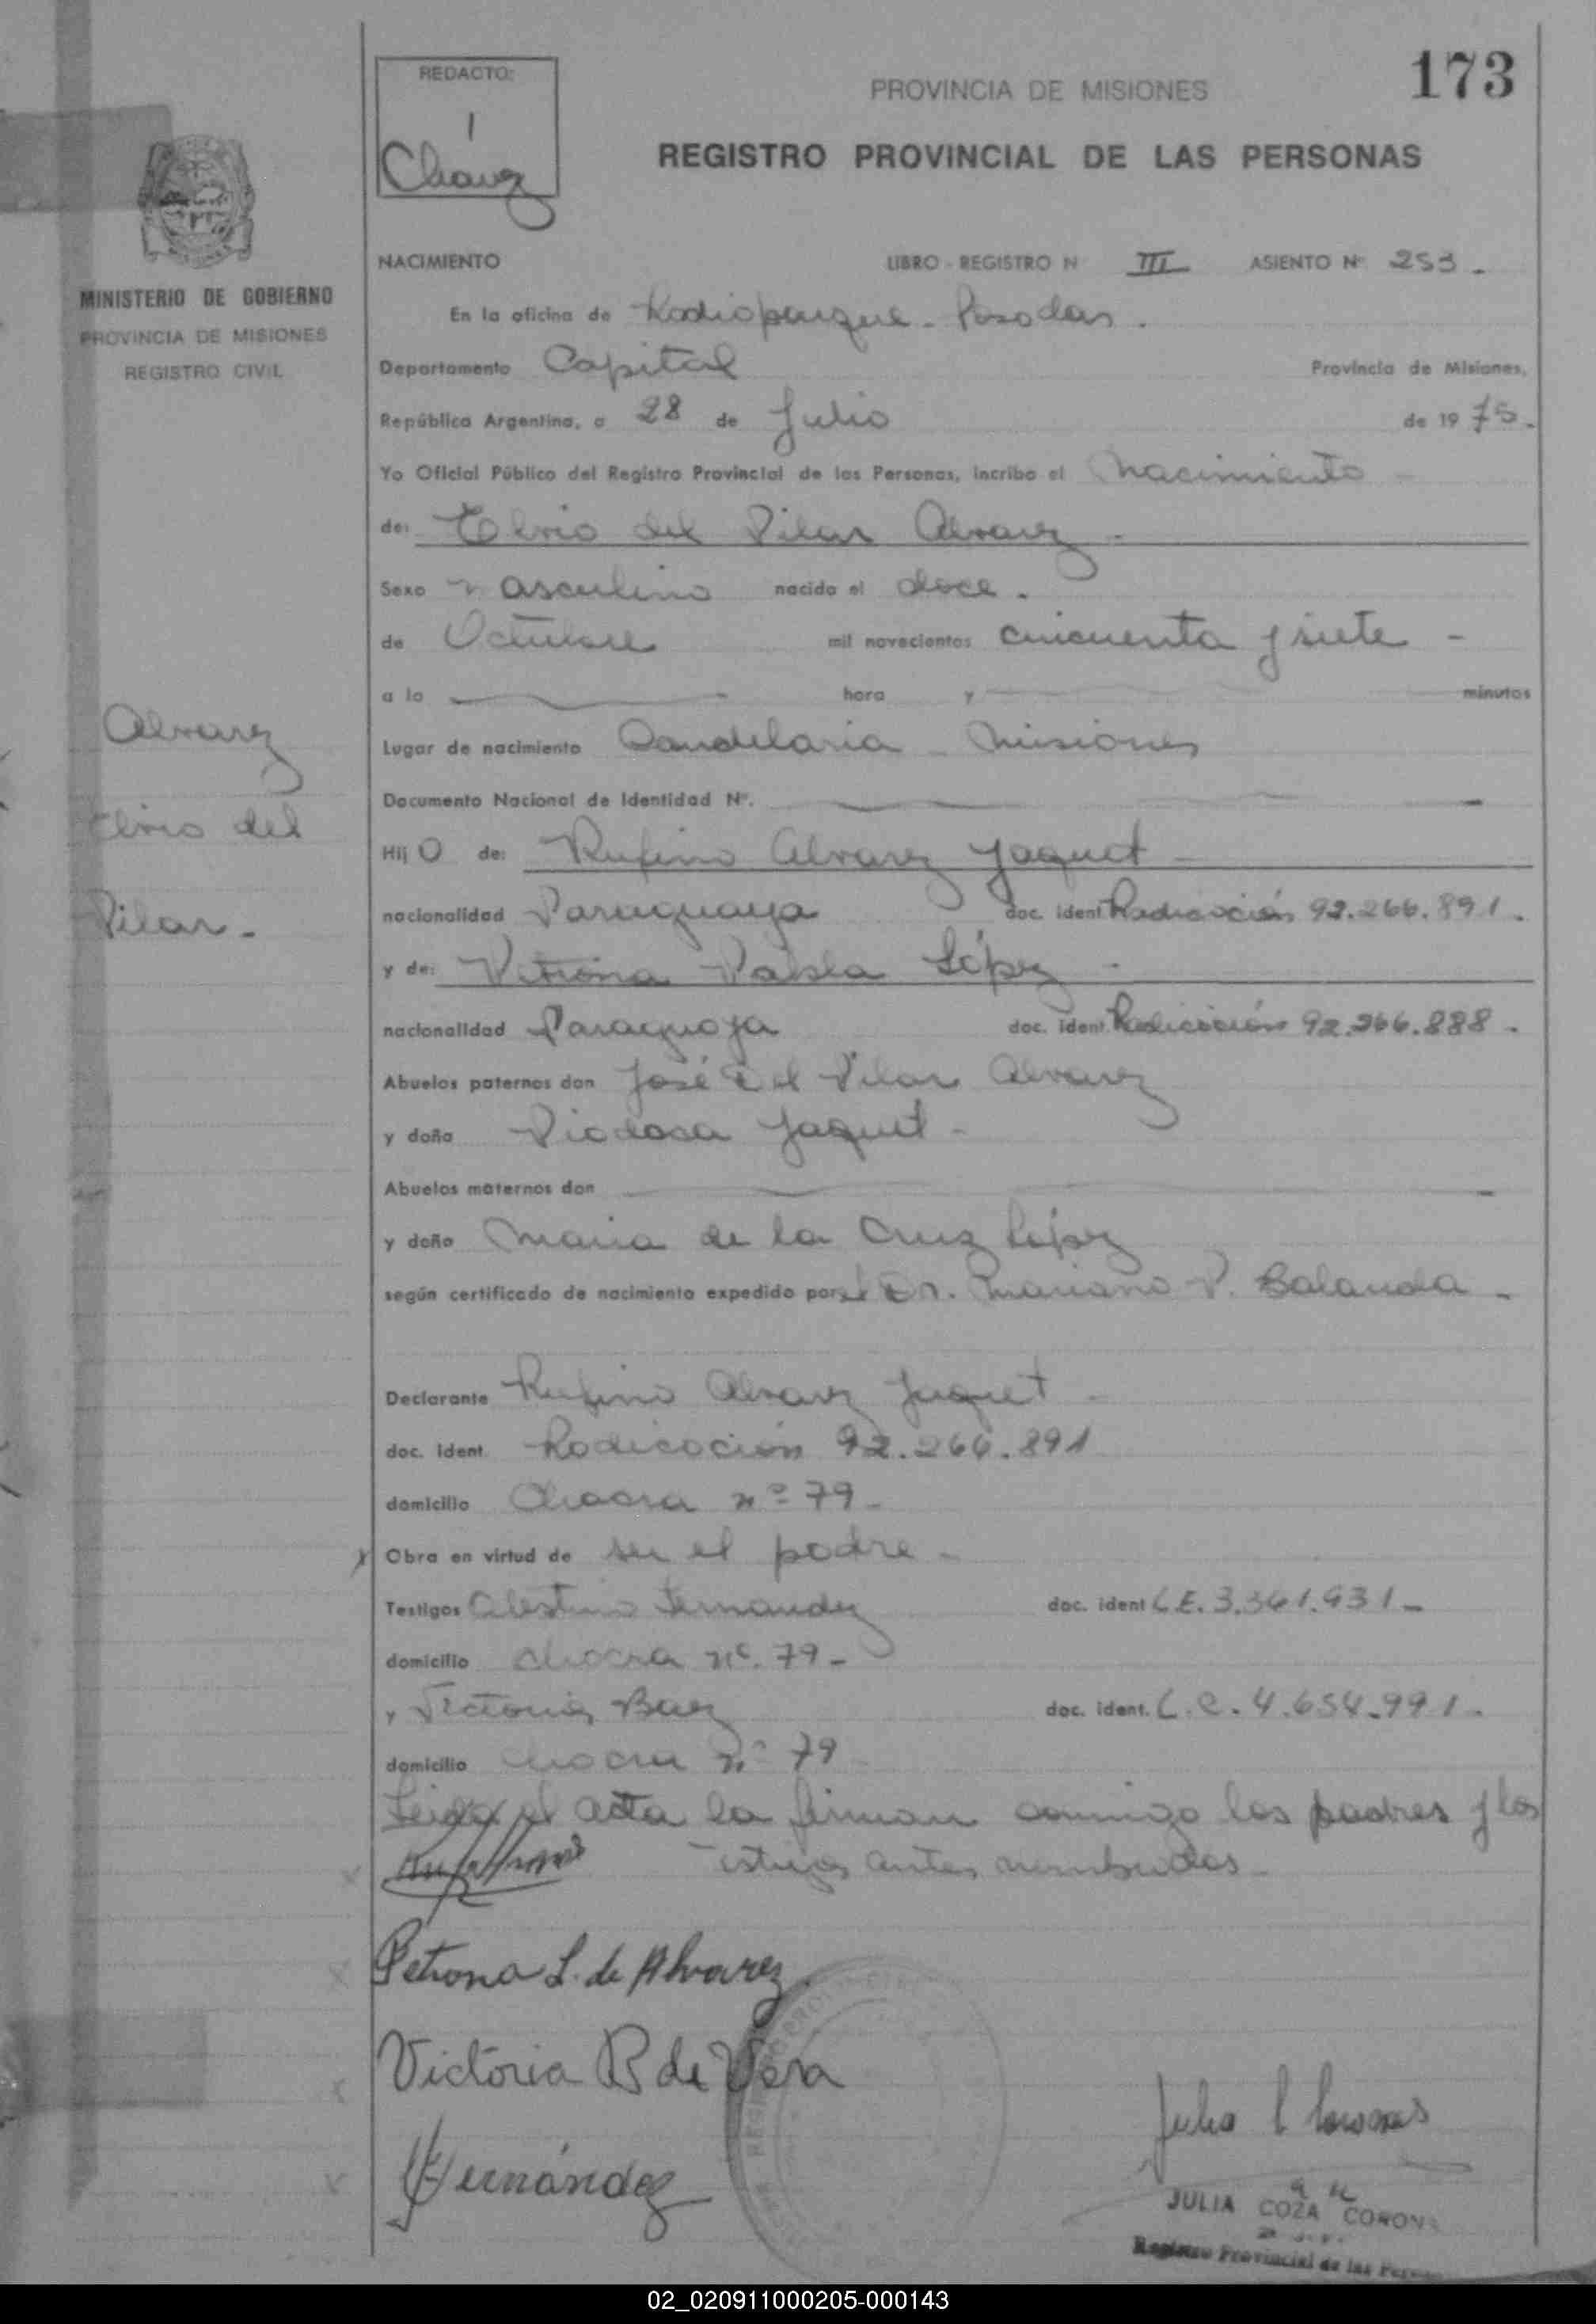 173
REDACTO:
1
Chavez
PROVINCIA DE MISIONES
REGISTRO PROVINCIAL DE LAS PERSONAS
MINISTERIO DE GOBIERNO
PROVINCIA DE MISIONES
REGISTRO CIVIL
NACIMIENTO LIBRO - REGISTRO N III ASIENTO Nº 253.
En la oficina de Radioparque - Posadas.
Departamento Capital Provincia de Misiones,
República Argentina, a 28 de Julio de 1975.
Yo Oficial Público del Registro Provincial de las Personas, incribo el Nacimiento -
de: Elvio del Pilar Alvarez -
Sexo masculino nacido el doce.
de Octubre mil novecientos cincuenta y siete -
a la hora y minutos
Alvarez
Elvio del
Pilar -
Lugar de nacimiento Candelaria - Misiones
Documento Nacional de Identidad Nº.
Hij o de: Rufino Alvarez Jaquet -
nacionalidad Paraguaya doc. ident Radicación 92.266.891.
y de: Petrona Pabla López -
nacionalidad Paraguaya doc. ident. Radicación 92.266.888.
Abuelos paternos don José Del Pilar Alvarez
y doña Jaquet -
Abuelos maternos don
y doña Maria de la Cruz López
según certificado de nacimiento expedido por el Dr. Mariano P. Balanda -
Declarante Rufino Alvarez Jaquet -
doc. ident. Radicación 92.266.891
domicilio Chacra nº 79 -
Obra en virtud de ser el padre -
Testigos Celestino Fernandez doc. ident L.E. 3.361.931 -
domicilio chacra nº. 79 -
y Victoria Baez doc. ident. L.C. 4.654.991 -
domicilio chacra nº 79
Leida el acta la firman conmigo los padres y los
testigos antes nombrados -
Petrona L. de Alvarez
Victoria B de Vera
Hernández
JULIA COZA CORONA
Registro Provincial de las Personas
02_020911000205-000143